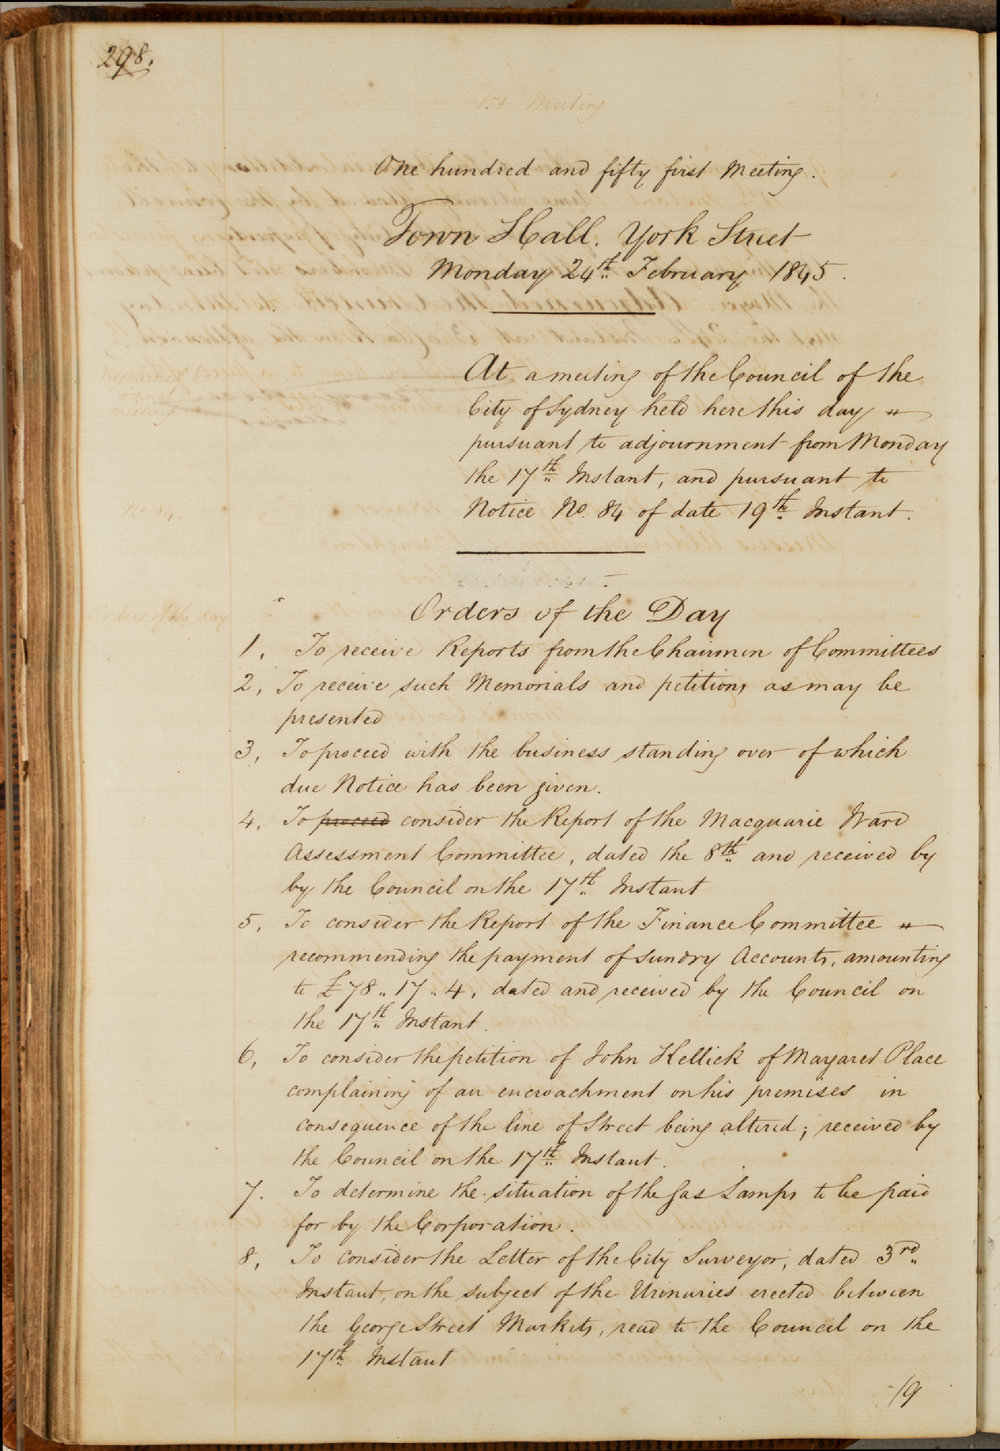 298.
151 Meeting
One hundred and fifty first Meeting.
Town Hall. York Street
Monday 24th February 1845.
At a meeting of the Council of the
City of Sydney held here this day "
pursuant to adjournment from Monday
the 17th Instant, and pursuant to
Notice No. 84 of date 19th Instant.
Orders of the day
Orders of the Day
1. To receive Reports from the Chairmen of Committees
2, To receive such Memorials and petitions as may be
presented
3, To proceed with the business standing over of which
due Notice has been given.
4. To proceed consider the Report of the Macquarie Ward
Assessment Committee, dated the 8th and received by
by the Council on the 17th Instant
5, To consider the Report of the Finance Committee "
recommending the payment of sundry Accounts, amounting
to £78 .. 17 .. 4, dated and received by the Council on
the 17th Instant.
6, To consider the petition of John Kellick of Margaret Place
complaining of an encroachment on his premises in
consequence of the line of Street being altered; received by
the Council on the 17th Instant.
7. To determine the situation of the Gas Lamps to be paid
for by the Corporation.
8, To consider the Letter of the City Surveyor, dated 3rd
Instant, on the subject of the Urinaries erected between
the George Street Markets, read to the Council on the
17th Instant
/9